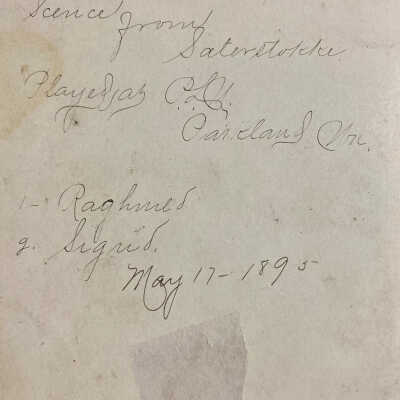 Scence
from
Saterstokke.
Played at P.L.U.
Parkland Wn.
1- Raghnred
2. Sigrid.
May 17- 1895